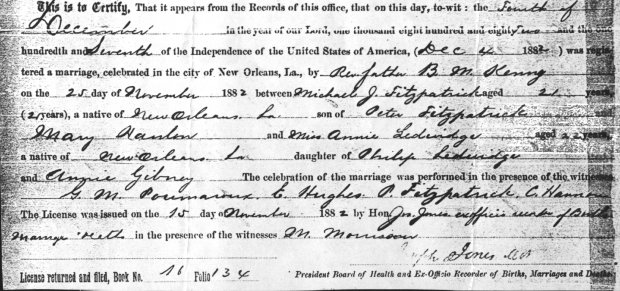 This is to Certify, That it appears from the Records of this office, that on this day, to-wit: the Fourth of
December in the year of our Lord, one thousand eight hundred and eighty two and the
hundredth and Seventh of the Independence of the United States of America, (Dec 4 1882) was regis-
tered a marriage, celebrated in the city of New Orleans, La., by Rev father B. M. Kenny
on the 25 day of November 1882 between Michael J. Fitzpatrick aged 21 years,
(21 years), a native of New Orleans La son of Peter Fitzpatrick
and Mary Hanlon and Miss Annie Ledwidge aged 22 years,
a native of New Orleans La daughter of Philip Ledwidge
and Annie Gibney The celebration of the marriage was performed in the presence of the witnesses
G. M. E. Hughes P. Fitzpatrick, C.
The License was issued on the 15 day of November 1882 by Hon. Jos. Jones exofficio of Births
Marriages Deaths in the presence of the witnesses M. Morrison
Joseph Jones M.D.
License returned and filed, Book No. 16 Folio 134 President Board of Health and Ex-Officio Recorder of Births, Marriages and Deaths